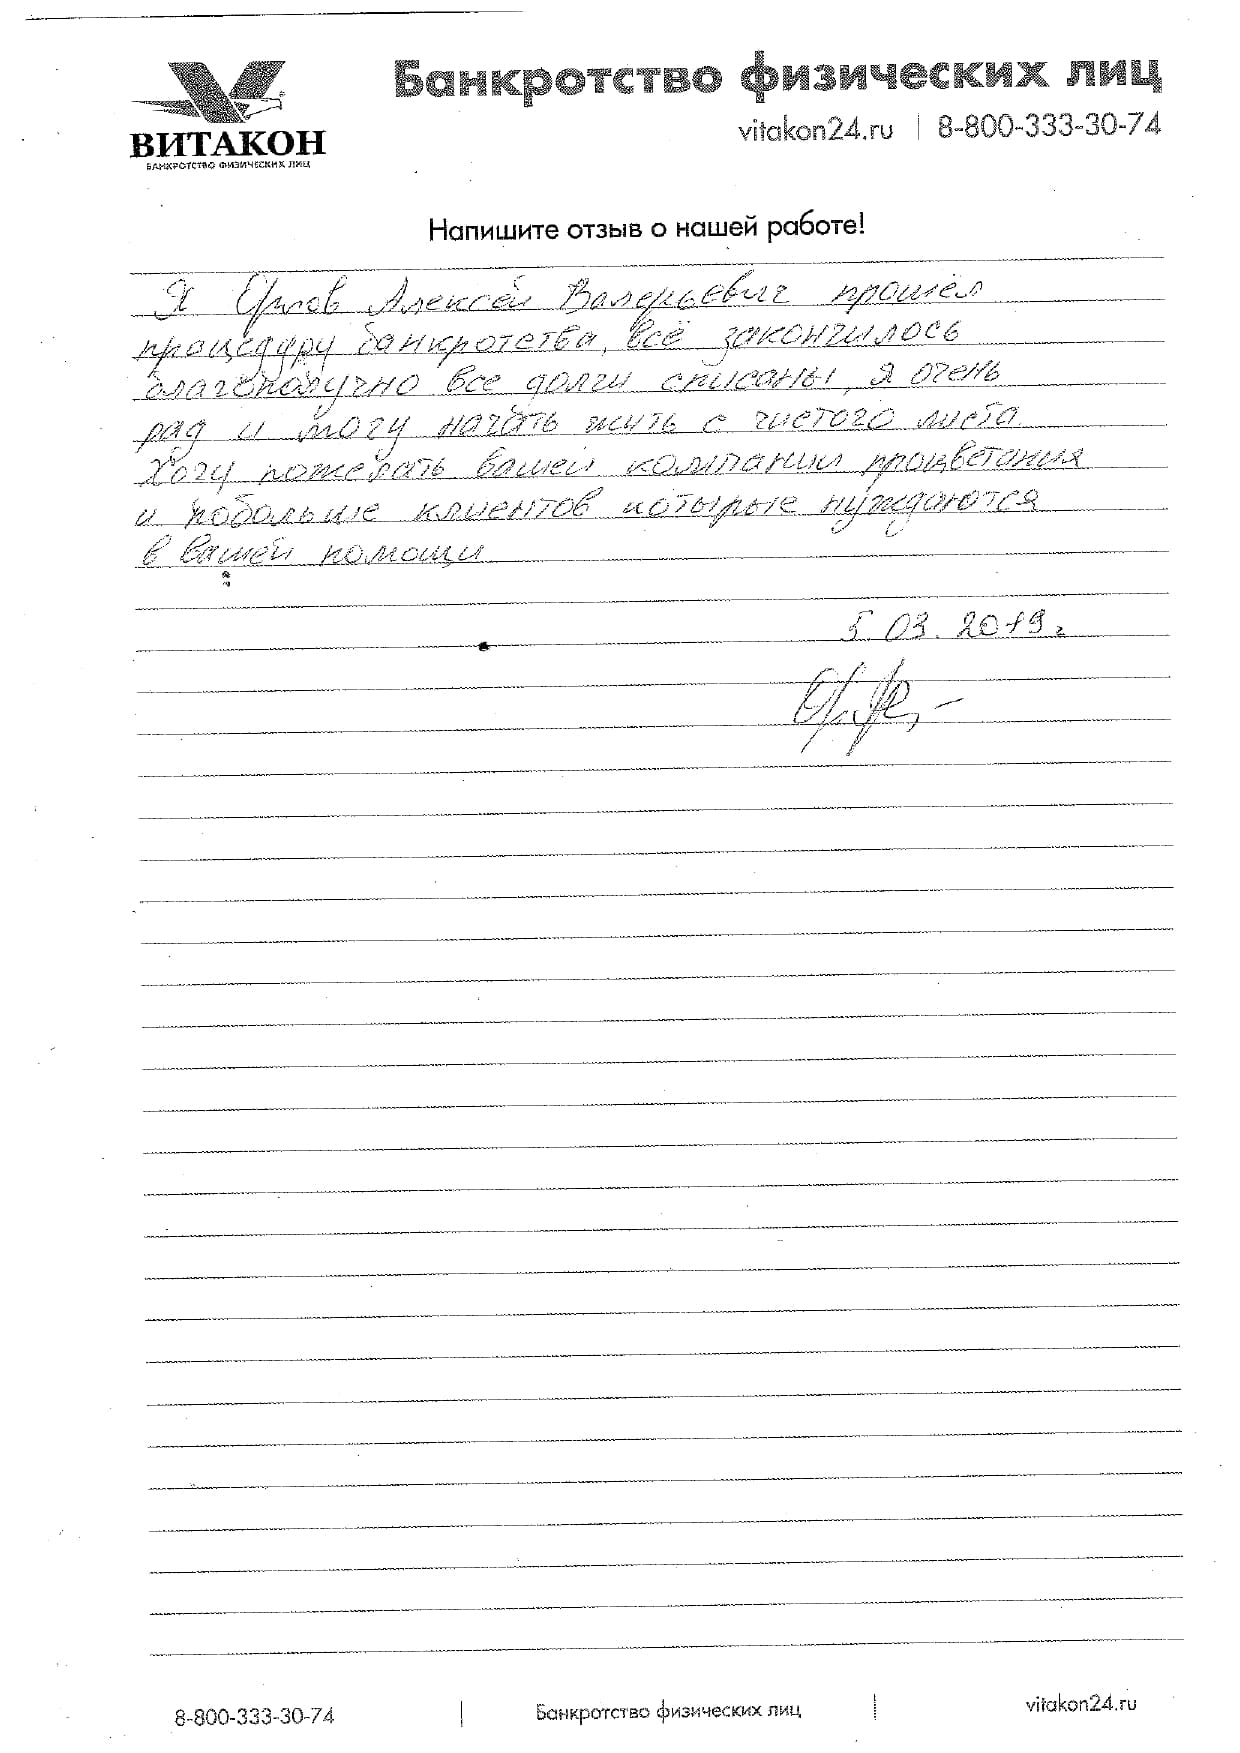 Банкротство физических лиц
ВИТАКОН
БАНКРОТСТВО ФИЗИЧЕСКИХ ЛИЦ
vitakon24.ru | 8-800-333-30-74
Напишите отзыв о нашей работе!
Я Алексей Валерьевич прошёл
процедуру банкротства, всё закончилось
благополучно все долги списаны, я очень
рад и могу начать жить с чистого листа.
Хочу пожелать вашей компании процветания
и побольше клиентов которые нуждаются
в вашей помощи
5.03.2019г
8-800-333-30-74 | Банкротство физических лиц | vitakon24.ru